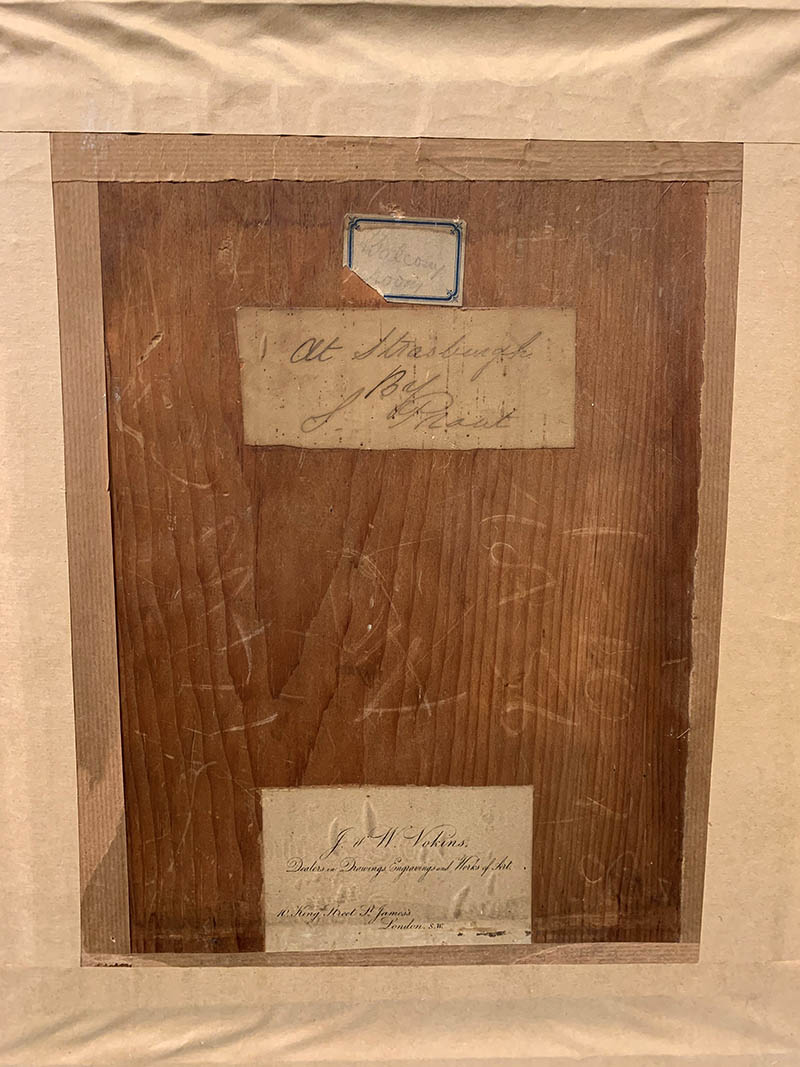 Balcony
Room
At Strasburgh
By
S. Prout
J. & W. Vokins,
Dealers in Drawings, Engravings and Works of Art.
10 King Street St. James's
London, S.W.